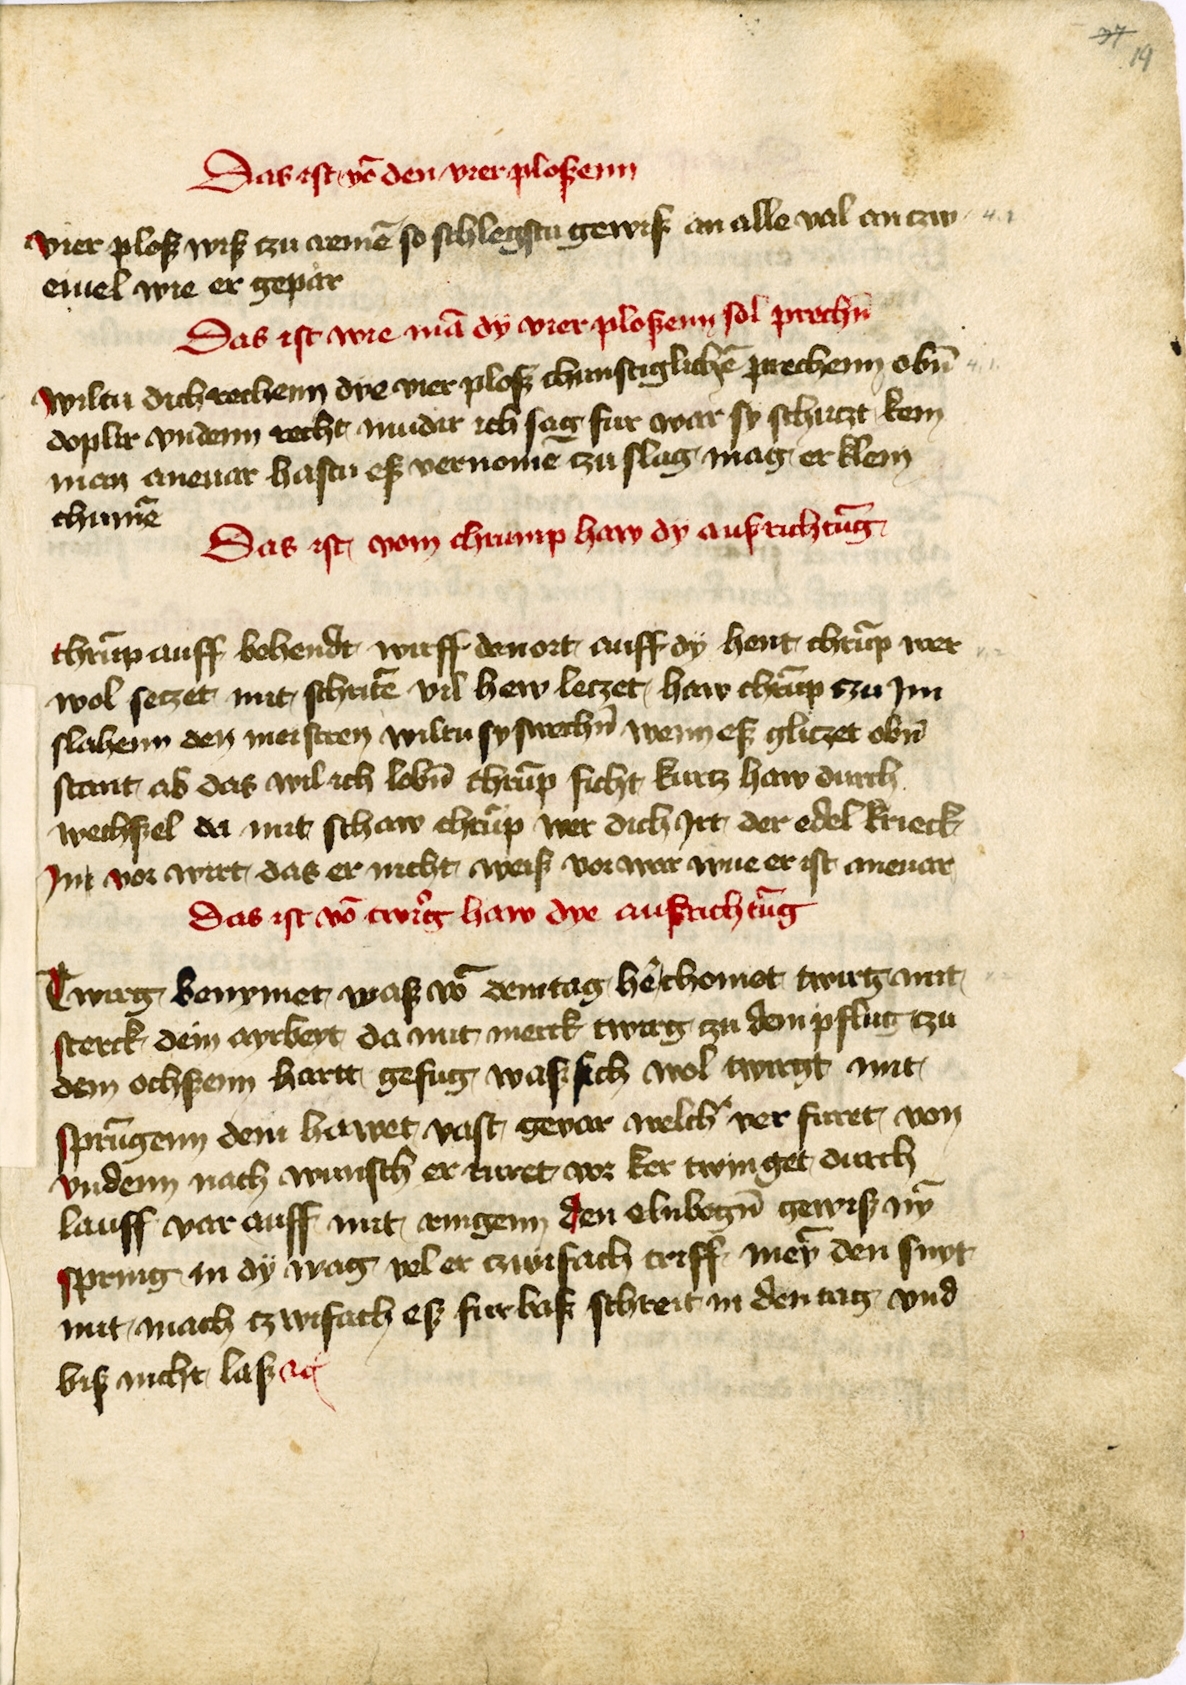 37
19
Das ist vō den vier ploßenn
vier ploß wiß tzu remē so schlegstu gewiß an alle val an tzw
eiuel wie er gepar
Das ist wie mā dy vier ploßenn sol prechn̄
wiltu dich rechenn dye vier ploß chunstiglichē prechenn obn̄
doplir vndenn recht mudir ich sag fur war sy schutzt kein
man aneuar hastu eß vernomē tzu slag mag er klein
chumē
Das ist vom chrump haw dy außrichtūg
chrūp auff behendt wirff den ort auff dy hent chrūp wer
wol setzet mit schritē vil hew letzet haw chrūp tzu Im
slahenn den meistren wiltu sy swechn̄ wenn eß glitzet obn̄
stant ab das wil ich lobn̄ chrūp ficht kurtz haw durch
wechßel da mit schaw chrūp wer dich Irt der edel krieck
Im vor wirt das er nicht weiß vor war wue er ist aneuar
Das ist vō twirg haw dye außrichtūg
Twirg benymet waß vō dem tag hē chomet twirg mit
sterck dein ayrbeyt da mit merck twirg zu dem pflug tzu
dem ochßenn hartt gefug waß sich wol twirgt mit
sprūgenn dem hawet vast gevar welch' ver furet von
vndenn nach wunsch er ruret vor ker twinget durch
lauff var auff mit ringenn den elnbogn̄ gewiß nȳ
spring in dy wag vel er tzwifach triff meȳ den snyt
mit mach tzwifach eß furbaß schreit in den tag vnd
biß nicht laß ag